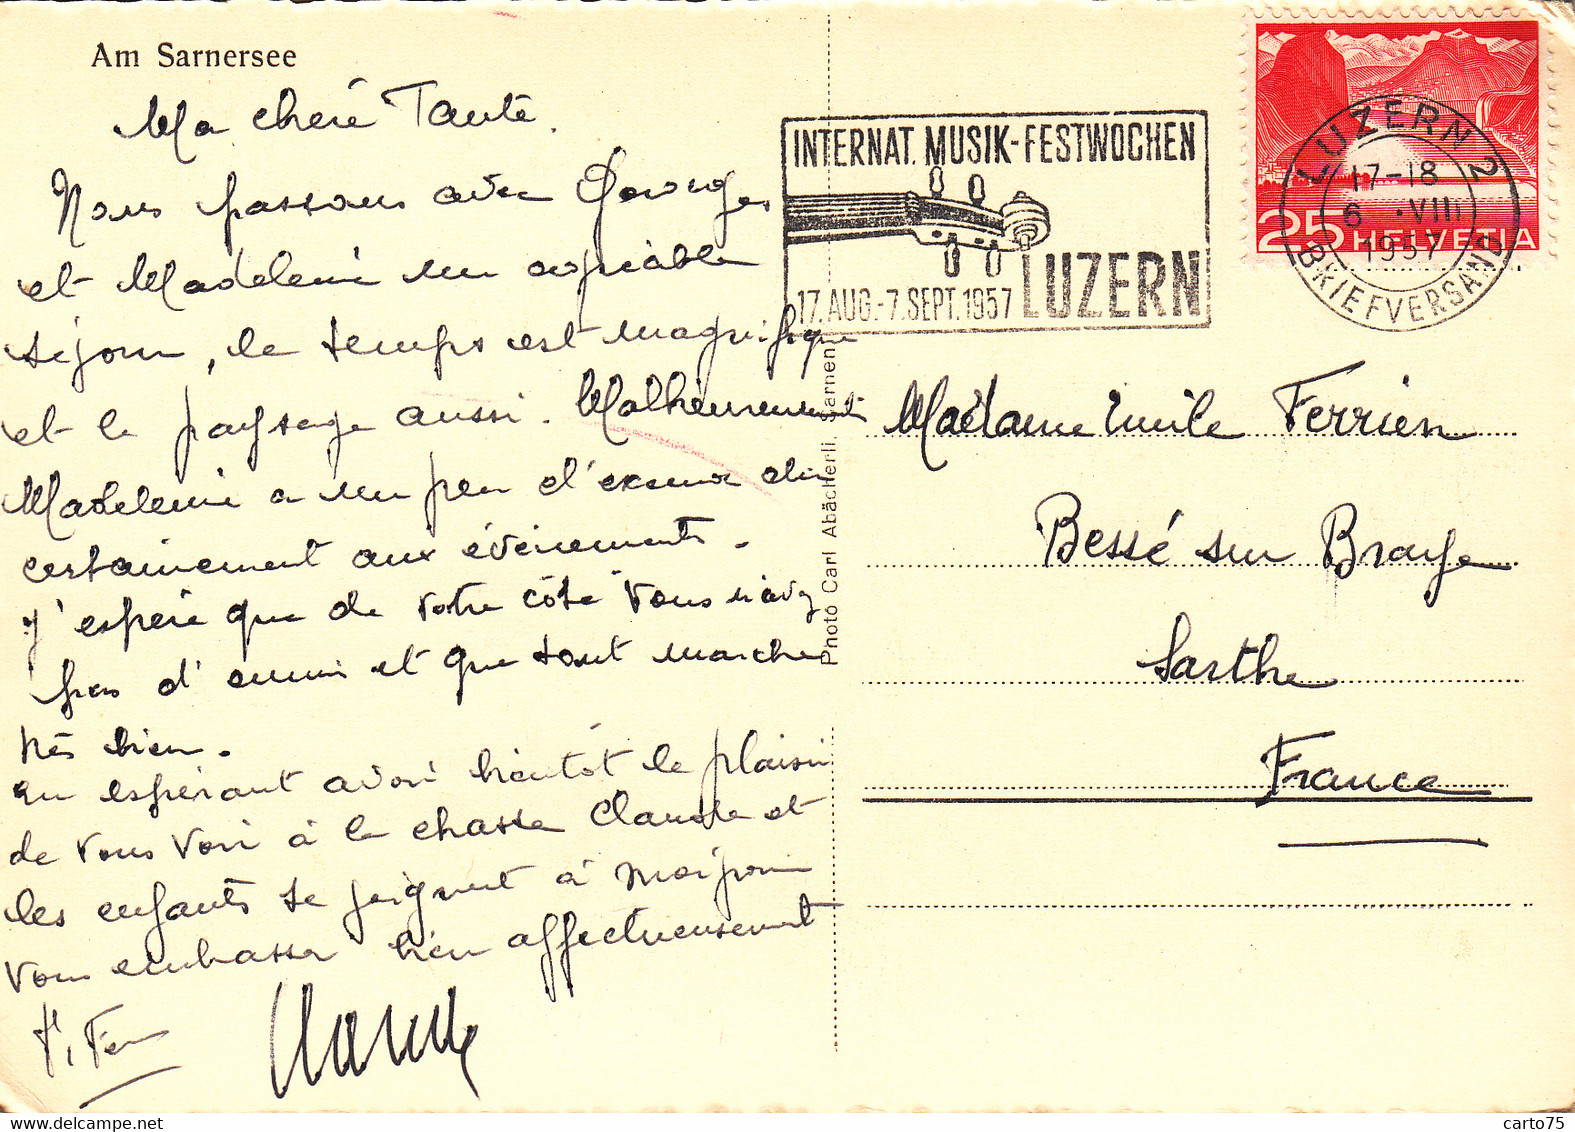 Am Sarnersee
Ma chère Tante.
Nous passons avec Georges
et Madeleine un agréable
séjour, le temps est magnifique
et le paysage aussi. Malheureusement
Madeleine a un peu d'eczema du
certainement aux évènements.
J'espère que de votre côté vous n'avez
pas d'ennui et que tout marche
très bien.
En espérant avoir bientôt le plaisir
de vous voir à la chasse Claude et
les enfants se joignent à moi pour
vous embrasser bien affectueusement
Claude
INTERNAT. MUSIK-FESTWOCHEN
17. AUG.-7. SEPT. 1957 LUZERN
LUZERN 2
17-18
6.VIII
1957
BRIEFVERSAND
25 HELVETIA
Photo Carl Abächerli, Sarnen
Madame Emile Ferrien
Bessé sur Braye
Sarthe
France
carto75